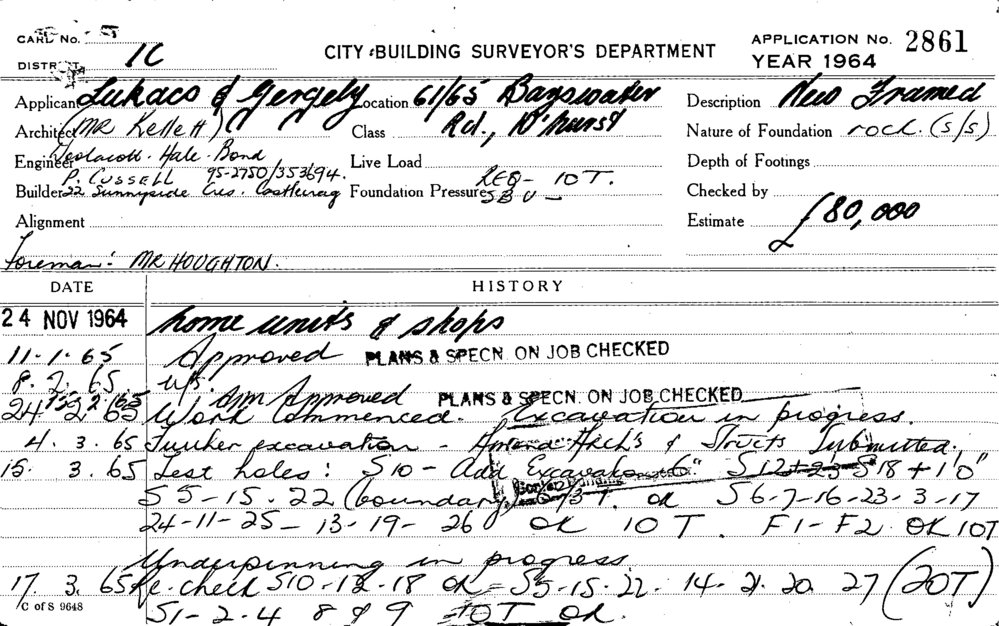 CARD No.
DISTRICT 1C
CITY BUILDING SURVEYOR'S DEPARTMENT
APPLICATION No. 2861
YEAR 1964
Applicant Lukacs & Gergely Location 61/65 Bayswater Description New Framed
Architect (MR Kellett) Class Rd., D'hurst Nature of Foundation rock. (s/s)
Engineer Woolacott. Hale. Bond Live Load Depth of Footings
P. CUSSELL 95-2750/353694.
Builder 22 Sunnyside Cres. Castlecrag Foundation Pressure REQ - 10T. Checked by
S B U -
Alignment Estimate £80,000
Foreman: MR HOUGHTON.
DATE HISTORY
24 NOV 1964 home units & shops
11.1.65 Approved PLANS & SPECN. ON JOB CHECKED
8.2.65. u/s.
Am Approved PLANS & SPECN. ON JOB CHECKED
24 2 65 Work Commenced. Excavation in progress.
4.3.65 Further excavation - Amend Arch's & Structs Submitted.
15.3.65 Test holes: S10 - Add Excavate 6" S12+23 S18 + 1'0"
S5-15.22 (boundary) OK S6-7-16-23-3-17
24-11-25-13-19-26 OK 10T. F1-F2 OK 10T
Underpinning in progress.
17.3.65 Re. check S10-12-18 OK = S5-15-22. 14-21.20.27 (20T)
S1-2-4 8 & 9 10T OK.
C of S 9648